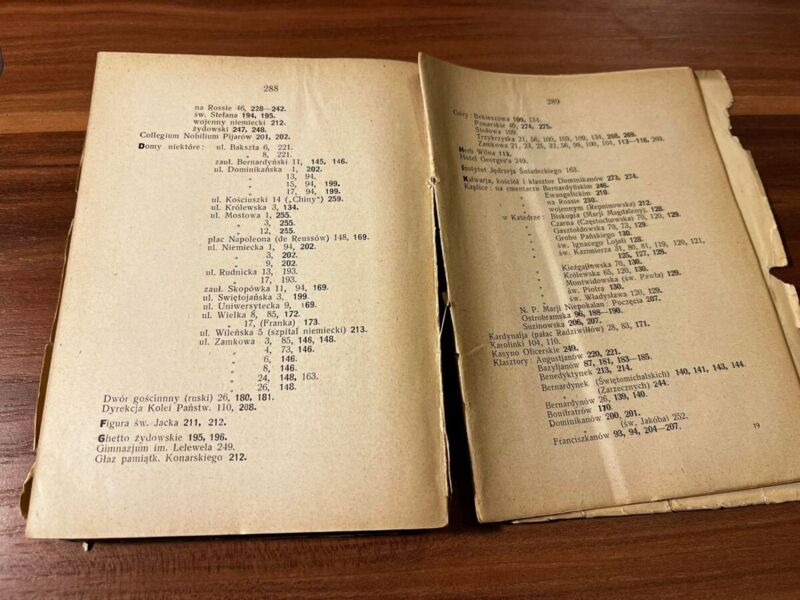 288
na Rossie 46, 228—242.
św. Stefana 194, 195.
wojenny niemiecki 212.
żydowski 247, 248.
Collegium Nobilium Pijarów 201, 202.
Domy niektóre: ul. Bakszta 6, 221.
„ 8, 221.
zauł. Bernardyński 11, 145, 146.
ul. Dominikańska 1, 202.
„ 13, 94.
„ 15, 94, 199.
„ 17, 94, 199.
ul. Kościuszki 14 („Chiny") 259.
ul. Królewska 3, 134.
ul. Mostowa 1, 255.
„ 3, 255.
„ 12, 255.
plac Napoleona (de Reussów) 148, 169.
ul. Niemiecka 1, 94, 202.
„ 3, 202.
„ 9, 202.
ul. Rudnicka 13, 193.
„ 17, 193.
zauł. Skopówka 11, 94, 169.
ul. Świętojańska 3, 199.
ul. Uniwersytecka 9, 169.
ul. Wielka 8, 85, 172.
„ 17, (Franka) 173.
ul. Wileńska 5 (szpital niemiecki) 213.
ul. Zamkowa 3, 85, 146, 148.
„ 4, 73, 146.
„ 6, 146.
„ 8, 146.
„ 24, 148, 163.
„ 26, 148.
Dwór gościnnny (ruski) 26, 180, 181.
Dyrekcja Kolei Państw. 110, 208.
Figura św. Jacka 211, 212.
Ghetto żydowskie 195, 196.
Gimnazjum im. Lelewela 249.
Głaz pamiątk. Konarskiego 212.
289
Góry: Bekieszowa 109, 134.
Ponarskie 40, 274, 275.
Stołowa 109.
Trzykrzyska 21, 56, 100, 103, 109, 134, 268, 269.
Zamkowa 21, 23, 25, 32, 56, 99, 100, 104, 113—116, 269.
Herb Wilna 113.
Hotel Georges'a 249.
Instytut Jędrzeja Śniadeckiego 163.
Kalwarja, kościół i klasztor Dominikanów 273, 274.
Kaplice: na cmentarzu Bernardyńskim 246.
„ Ewangelickim 210.
„ na Rossie 230.
„ wojennym (Repninowska) 212.
w Katedrze: Biskupia (Marji Magdaleny) 128.
„ Czarna (Częstochowska) 70, 120, 129.
„ Gasztołdowska 70, 73, 129.
„ Grobu Pańskiego 130.
„ św. Ignacego Lojoli 128.
„ św. Kazimierza 31, 80, 81, 119, 120, 121,
125, 127, 128.
„ Kieżgajłowska 70, 130.
„ Królewska 65, 120, 130.
„ Montwidowska (św. Pawła) 129.
„ św. Piotra 130.
„ św. Władysława 120, 129.
N. P. Marji Niepokalan: Poczęcia 207.
Ostrobramska 96, 188—190.
Suzinowska 206, 207.
Kardynalja (pałac Radziwiłłów) 28, 83, 171.
Karolinki 104, 110.
Kasyno Oficerskie 249.
Klasztory: Augustjanów 220, 221.
Bazyljanów 87, 181, 183—185.
Benedyktynek 213, 214.
Bernardynek (Świętomichalskich) 140, 141, 143, 144.
„ (Zarzecznych) 244.
Bernardynów 26, 139, 140.
Bonifratrów 170.
Dominikanów 200, 201.
„ (św. Jakóba) 252.
Franciszkanów 93, 94, 204—207.
19